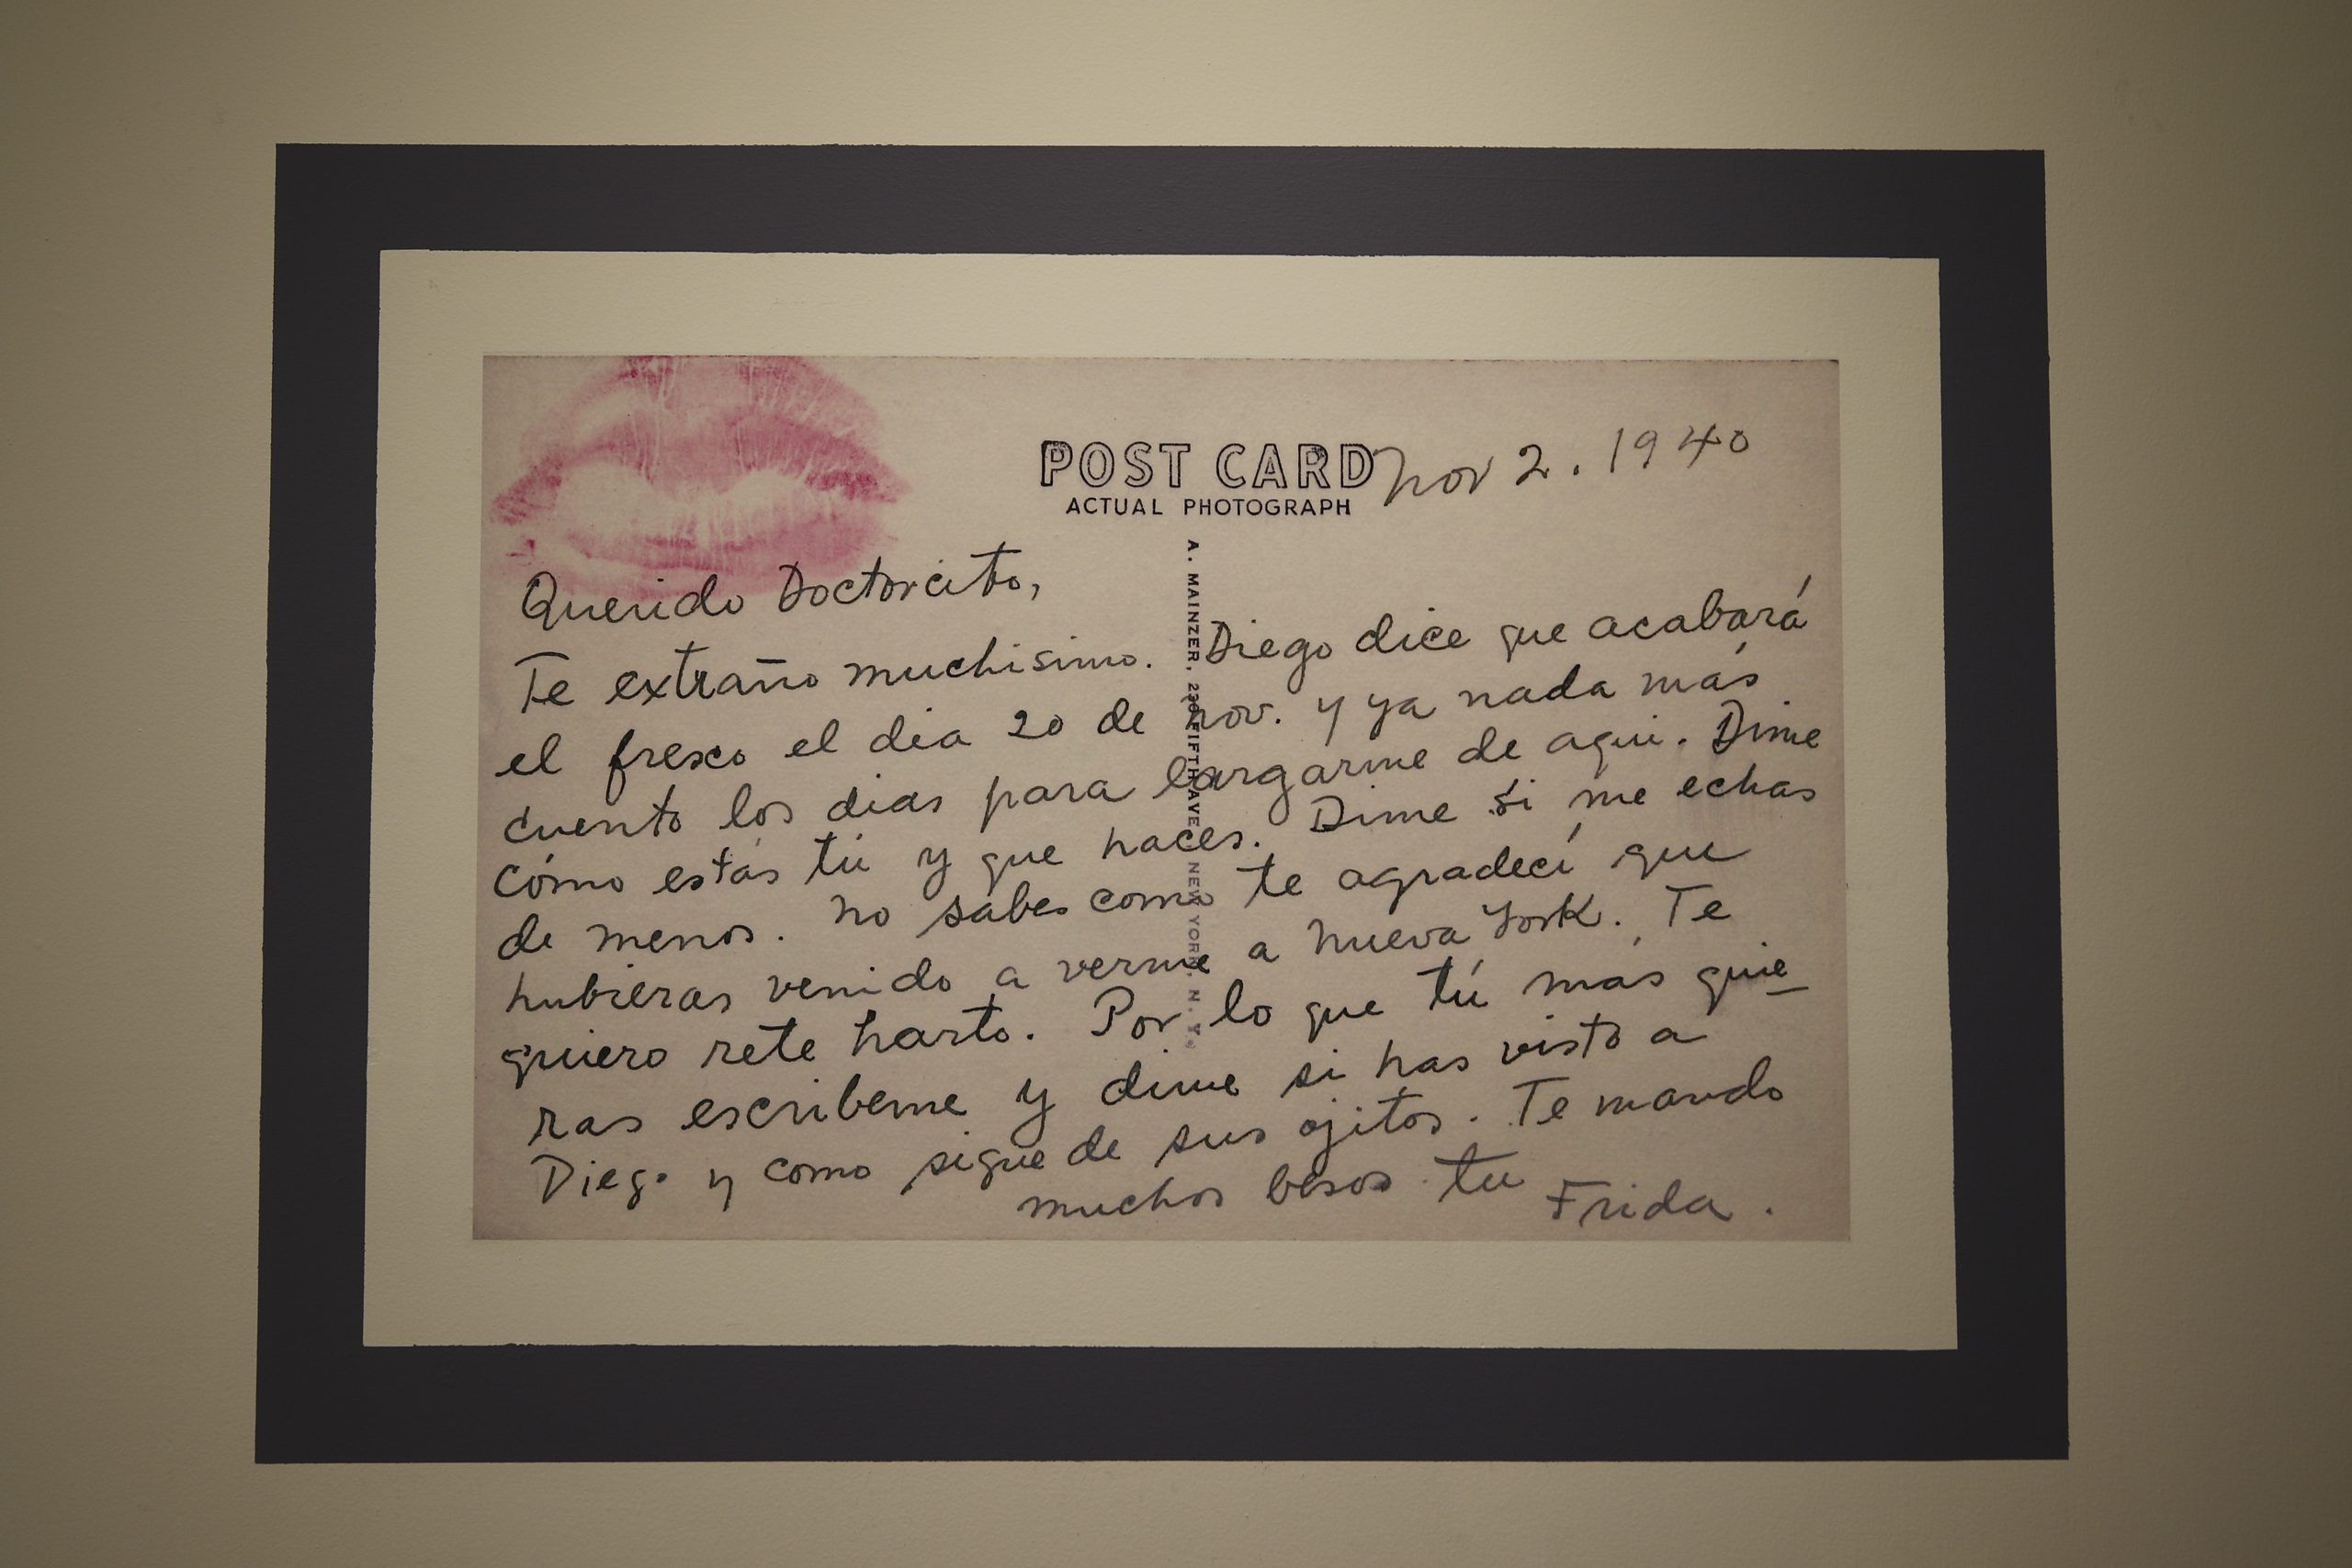 POST CARD
ACTUAL PHOTOGRAPH
nov 2. 1940
A. MAINZER, 230 FIFTH AVE. NEW YORK, N. Y.
Querido Doctorcito,
Te extraño muchisimo. Diego dice que acabará
el fresco el dia 20 de nov. y ya nada más
cuento los dias para largarme de aqui. Dime
cómo estás tú y que haces. Dime si me echas
de menos. no sabes como te agradecí que
hubieras venido a verme a nueva York. Te
quiero rete harto. Por lo que tú más quie
ras escribeme y dime si has visto a
Diego y como sigue de sus ojitos. Te mando
muchos besos tu Frida.